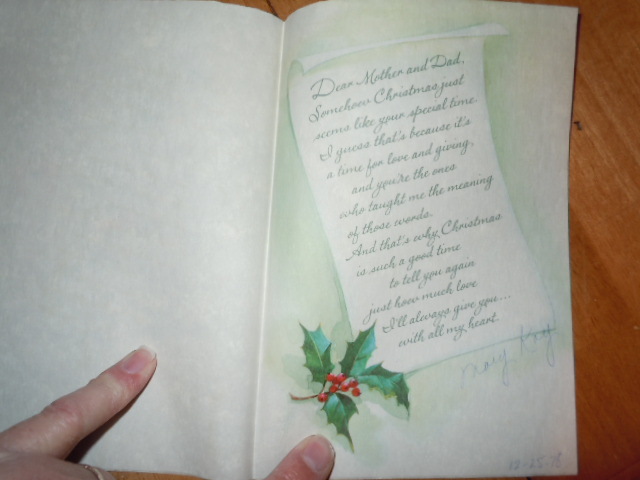 Dear Mother and Dad,
Somehow Christmas just
seems like your special time.
I guess that's because it's
a time for love and giving,
and you're the ones
who taught me the meaning
of those words.
And that's why Christmas
is such a good time
to tell you again
just how much love
I'll always give you...
with all my heart.
Mary
12-25-